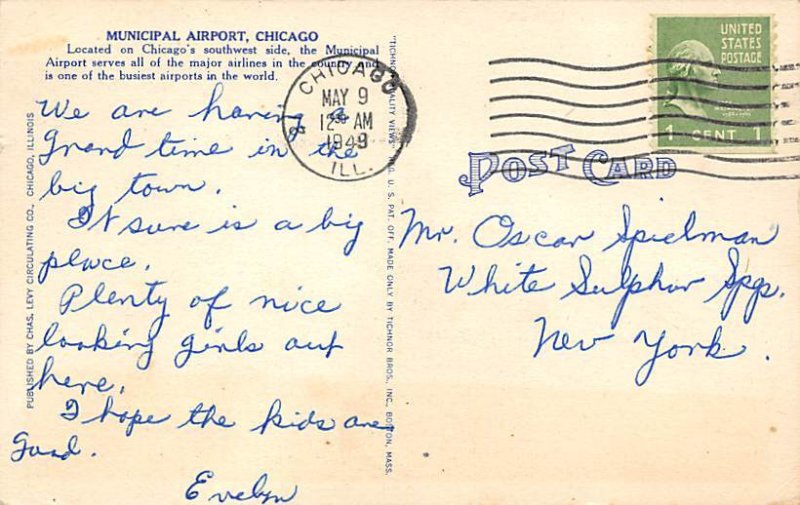 MUNICIPAL AIRPORT, CHICAGO
Located on Chicago's southwest side, the Municipal
Airport serves all of the major airlines in the country and
is one of the busiest airports in the world.
We are having a
Grand time in the
big town.
It sure is a big
place.
Plenty of nice
looking girls out
here.
I hope the kids are
Good.
Evelyn
PUBLISHED BY CHAS. LEVY CIRCULATING CO., CHICAGO, ILLINOIS
"TICHNOR QUALITY VIEWS" REG. U. S. PAT. OFF. MADE ONLY BY TICHNOR BROS., INC., BOSTON, MASS.
CHICAGO
MAY 9
12 AM
1949
ILL.
UNITED
STATES
POSTAGE
1 CENT 1
POST CARD
Mr. Oscar Spielman
White Sulphur Spgs.
New York.